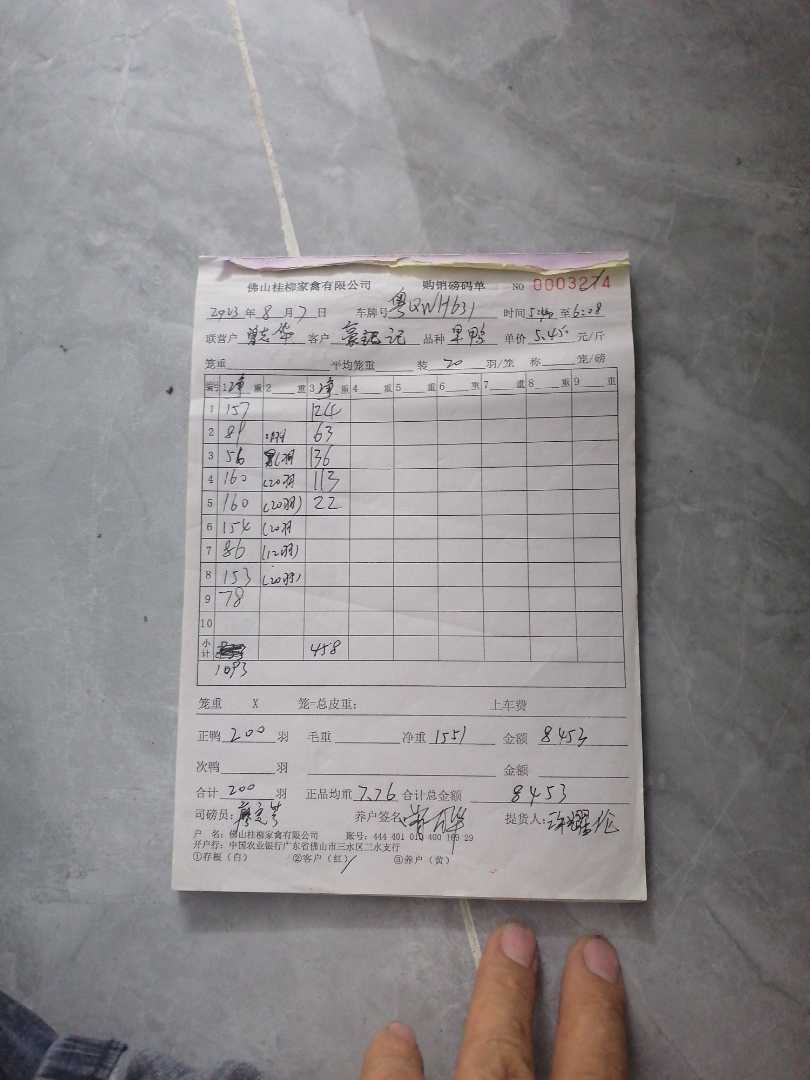 佛山桂柳家禽有限公司 购销磅码单 NO 0003274
2023 年 8 月 7 日 车牌号 粤QWH631 时间 5:40 至 6:08
联营户 客户 品种 单价 5.450 元/斤
笼重 平均笼重 装 20 羽/笼 称 笼/磅
1 净 重 2 重 3 净 重 4 重 5 重 6 重 7 重 8 重 9 重
1 157 124
2 89 63
3 56 136
4 160 (20羽 113
5 160 (20羽) 22
6 154 (20羽
7 86 (12羽)
8 153 (20羽)
9 78
10
小计 458
1093
笼重 X 笼=总皮重: 上车费
正鸭 200 羽 毛重 净重 1551 金额 8453
次鸭 羽 金额
合计 200 羽 正品均重 7.76 合计总金额 8453
司磅员: 养户签名: 提货人:
户 名: 佛山桂柳家禽有限公司 账号: 444 401 010 400 29
开户行: 中国农业银行广东省佛山市三水区二水支行
①存根（白） ②客户（红） ③养户（黄）